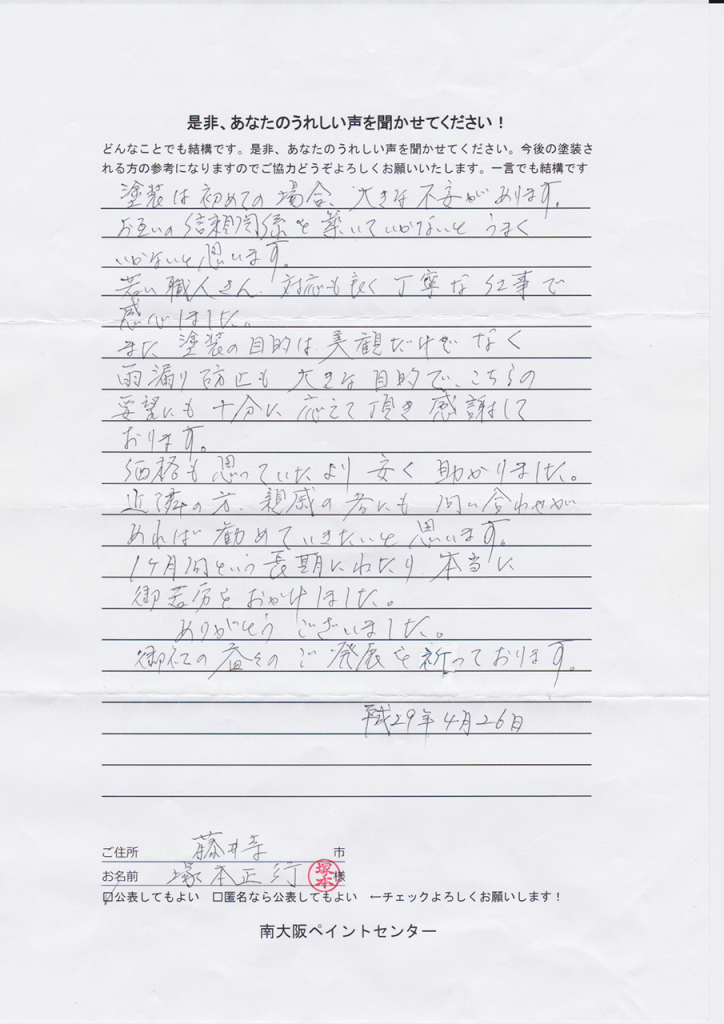 是非、あなたのうれしい声を聞かせてください！
どんなことでも結構です。是非、あなたのうれしい声を聞かせてください。今後の塗装さ
れる方の参考になりますのでご協力どうぞよろしくお願いいたします。一言でも結構です
塗装は初めての場合、大きな不安があります。
お互いの信頼関係を築いていかないとうまく
いかないと思います。
若い職人さん、対応も良く丁寧な仕事で
感心しました。
また塗装の目的は美観だけでなく
雨漏り防止も大きな目的で、こちらの
要望にも十分に応えて頂き感謝して
おります。
価格も思っていたより安く助かりました。
近隣の方、親戚の者にも問い合わせが
あれば勧めていきたいと思います。
1ヶ月間という長期にわたり本当に
御苦労をおかけしました。
ありがとうございました。
御社の益々のご発展を祈っております。
平成29年4月26日
ご住所 藤井寺 市
お名前 塚本正行 様
塚本
☑公表してもよい □匿名なら公表してもよい ←チェックよろしくお願いします！
南大阪ペイントセンター